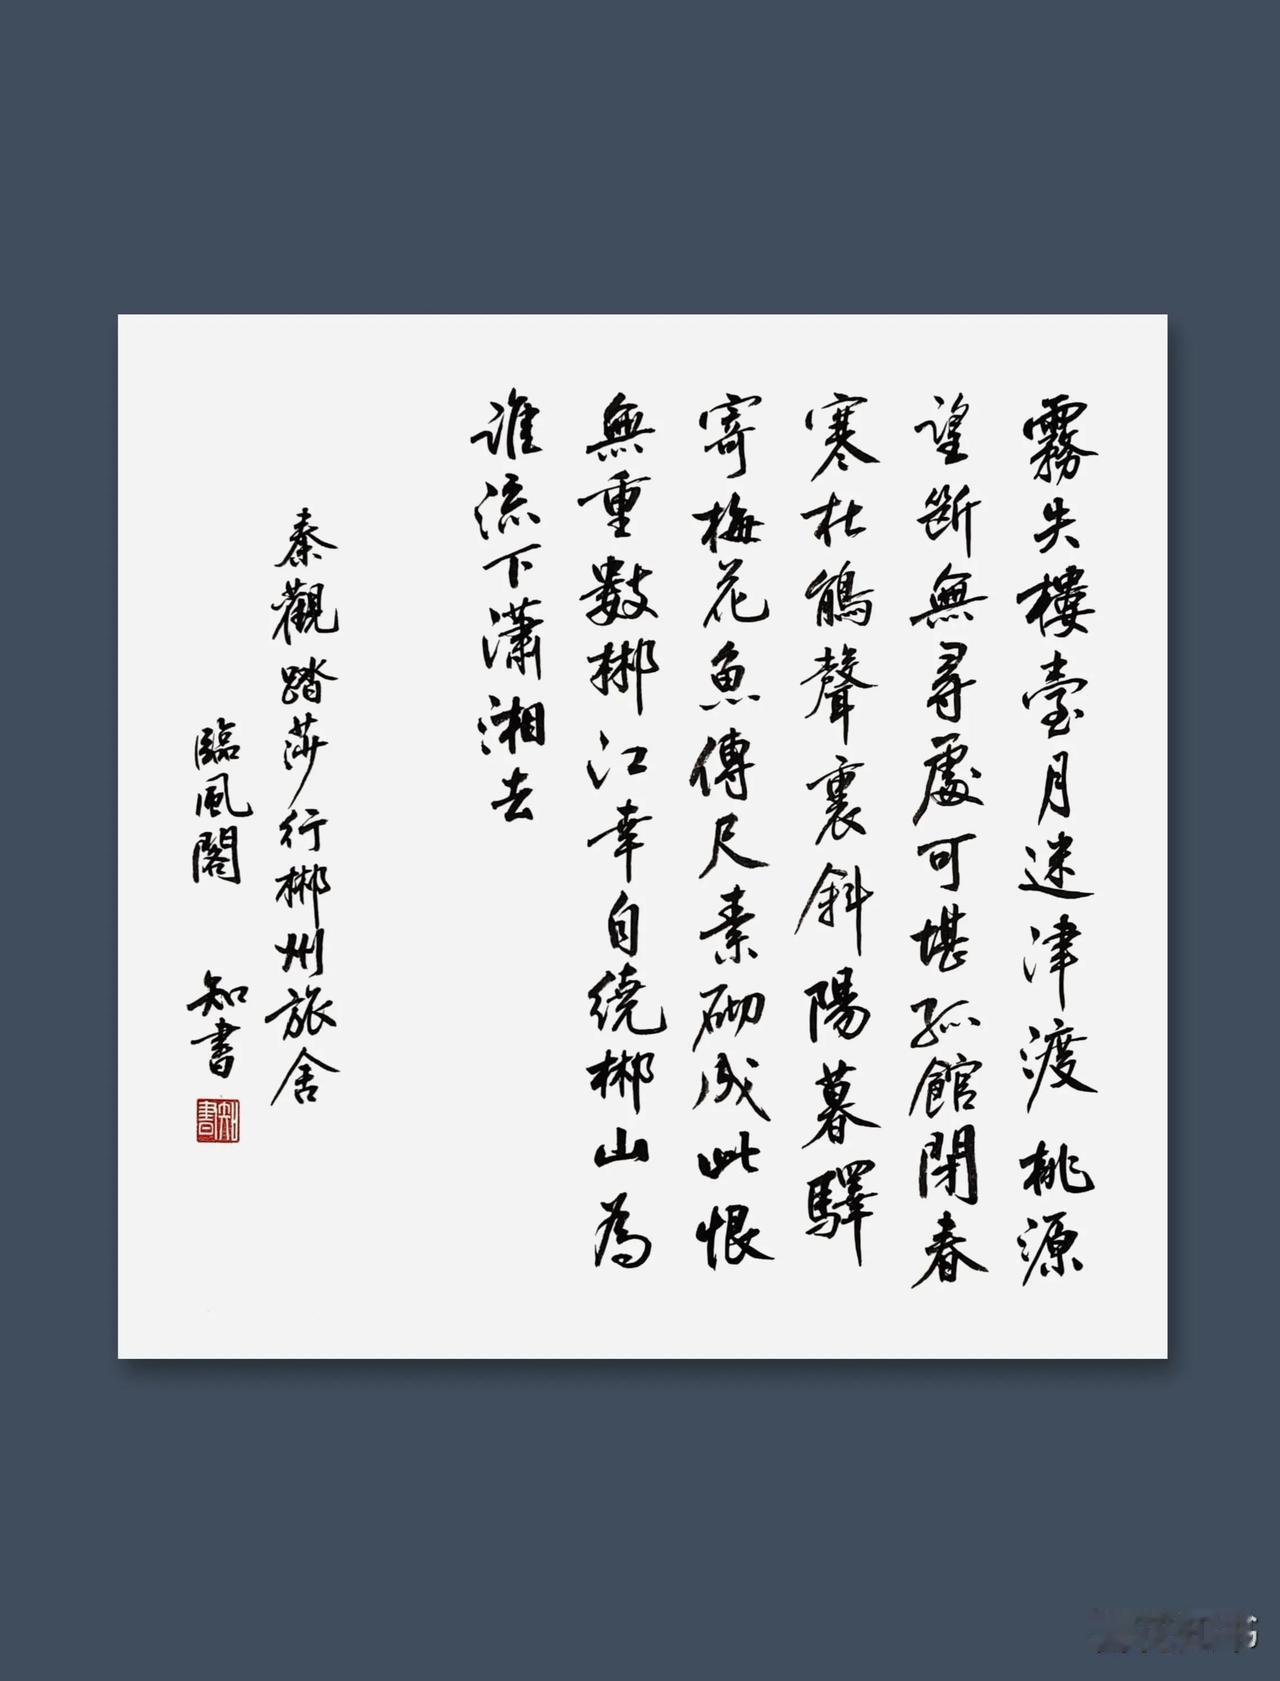 霧失樓臺月迷津渡桃源
望斷無尋處可堪孤館閉春
寒杜鵑聲裏斜陽暮驛
寄梅花魚傳尺素砌成此恨
無重數郴江幸自繞郴山為
誰流下瀟湘去
秦觀踏莎行郴州旅舍
臨風閣 知書
知書